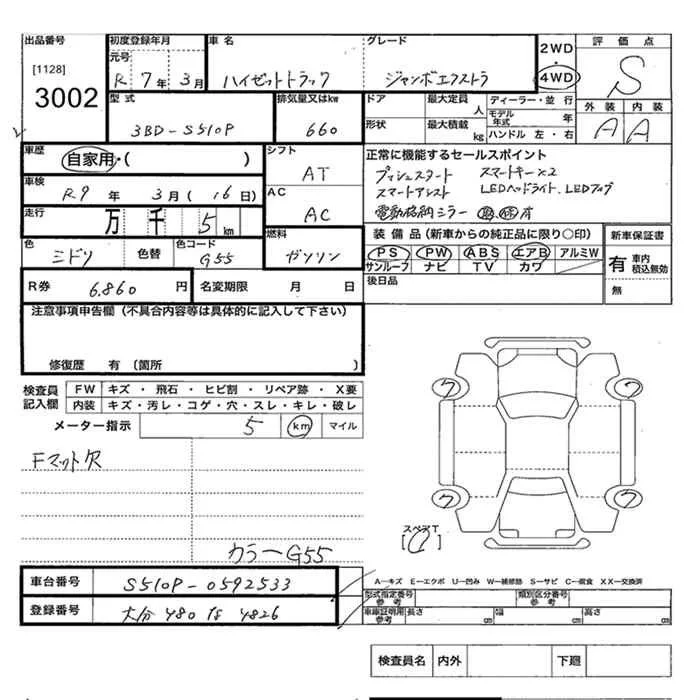 出品番号 初度登録年月 車名 グレード 2WD・4WD 評価点
[1128] 元号
3002 R 7年 3月 ハイゼットトラック ジャンボエクストラ S
型式 排気量又はkw ドア 最大定員 人 ディーラー・並行 外装 内装
3BD-S510P 660 形状 最大積載 kg モデル年式 年 A A
ハンドル 左・右
車歴 自家用・( ) シフト AT 正常に機能するセールスポイント
車検 R9年 3月(16日) AC AC プッシュスタート スマートキー×2
スマートアシスト LEDヘッドライト、LEDフォグ
走行 万 千 5 km 電動格納ミラー 取 保 有
色 ミドリ 色替 色コード G55 燃料 ガソリン 装備品(新車からの純正品に限り○印) 新車保証書
PS PW ABS エアB アルミW 有 車内積込無効
サンルーフ ナビ TV カワ 無
R券 6,860円 名変期限 月 日 後日品
注意事項申告欄(不具合内容等は具体的に記入して下さい)
修復歴 有(箇所 )
検査員記入欄 FW キズ・飛石・ヒビ割・リペア跡・X要
内装 キズ・汚レ・コゲ・穴・スレ・キレ・破レ
メーター指示 5 km マイル
Fマット欠
フ フ
フ フ
スペアT
[ ]
カラーG55
車台番号 S510P-0592533
A—キズ E—エクボ U—凹み W—補修跡 S—サビ C—腐食 XX—交換済
登録番号 大分 480 も 4826
型式指定番号参考 類別区分番号参考
車庫証明用参考 長さ cm 幅 cm 高さ cm
検査員名 内外 下廻